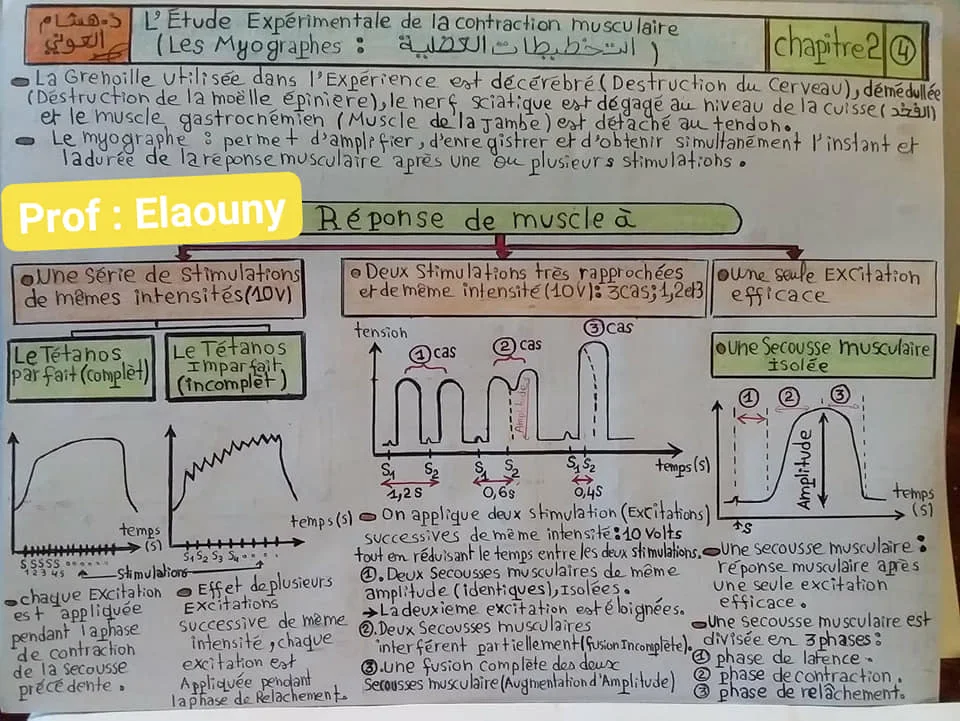 د. هشام
العوني
L'Étude Expérimentale de la contraction musculaire
(Les Myographes : التخطيطات العضلية)
chapitre2 ④
La Grenoille utilisée dans l'Expérience est décérébré (Destruction du Cerveau), démédullée
(Déstruction de la moëlle épinière), le nerf sciatique est dégagé au niveau de la cuisse (الفخد)
et le muscle gastrocnémien (Muscle de la Jambe) est détaché au tendon.
Le myographe : permet d'amplifier, d'enregistrer et d'obtenir simultanément l'instant et
la durée de la réponse musculaire après une ou plusieurs stimulations.
Prof : Elaouny
Réponse de muscle à
Une série de Stimulations
de mêmes intensités (10V)
Le Tétanos
parfait (complèt)
Le Tétanos
Imparfait
(incomplèt)
temps
(s)
S S S S S
1 2 3 4 5
temps (s)
S1 S2 S3 S4
Stimulations
chaque Excitation
est appliquée
pendant la phase
de contraction
de la secousse
précédente.
Effet de plusieurs
Excitations
successive de même
intensité, chaque
excitation est
Appliquée pendant
la phase de Relâchement.
Deux Stimulations très rapprochées
et de même intensité (10V) : 3cas; 1,2et3
tension
① cas
② cas
③ cas
Amplitude
S1 S2 S1 S2 S1 S2
temps (s)
1,2s 0,6s 0,4s
On applique deux stimulation (Excitations)
successives de même intensité : 10 Volts
tout en réduisant le temps entre les deux stimulations.
①. Deux Secousses musculaires de même
amplitude (identiques), Isolées.
→ La deuxieme excitation est éloignées.
②. Deux Secousses musculaires
interférent partiellement (fusion Incomplète).
③. une fusion complète des deux
Secousses musculaire (Augmentation d'Amplitude)
une seule EXcitation
efficace
une Secousse musculaire
isolée
① ② ③
Amplitude
S
temps
(s)
Une secousse musculaire :
réponse musculaire après
une seule excitation
efficace.
Une secousse musculaire est
divisée en 3 phases :
① phase de latence.
② phase de contraction.
③ phase de relâchement.